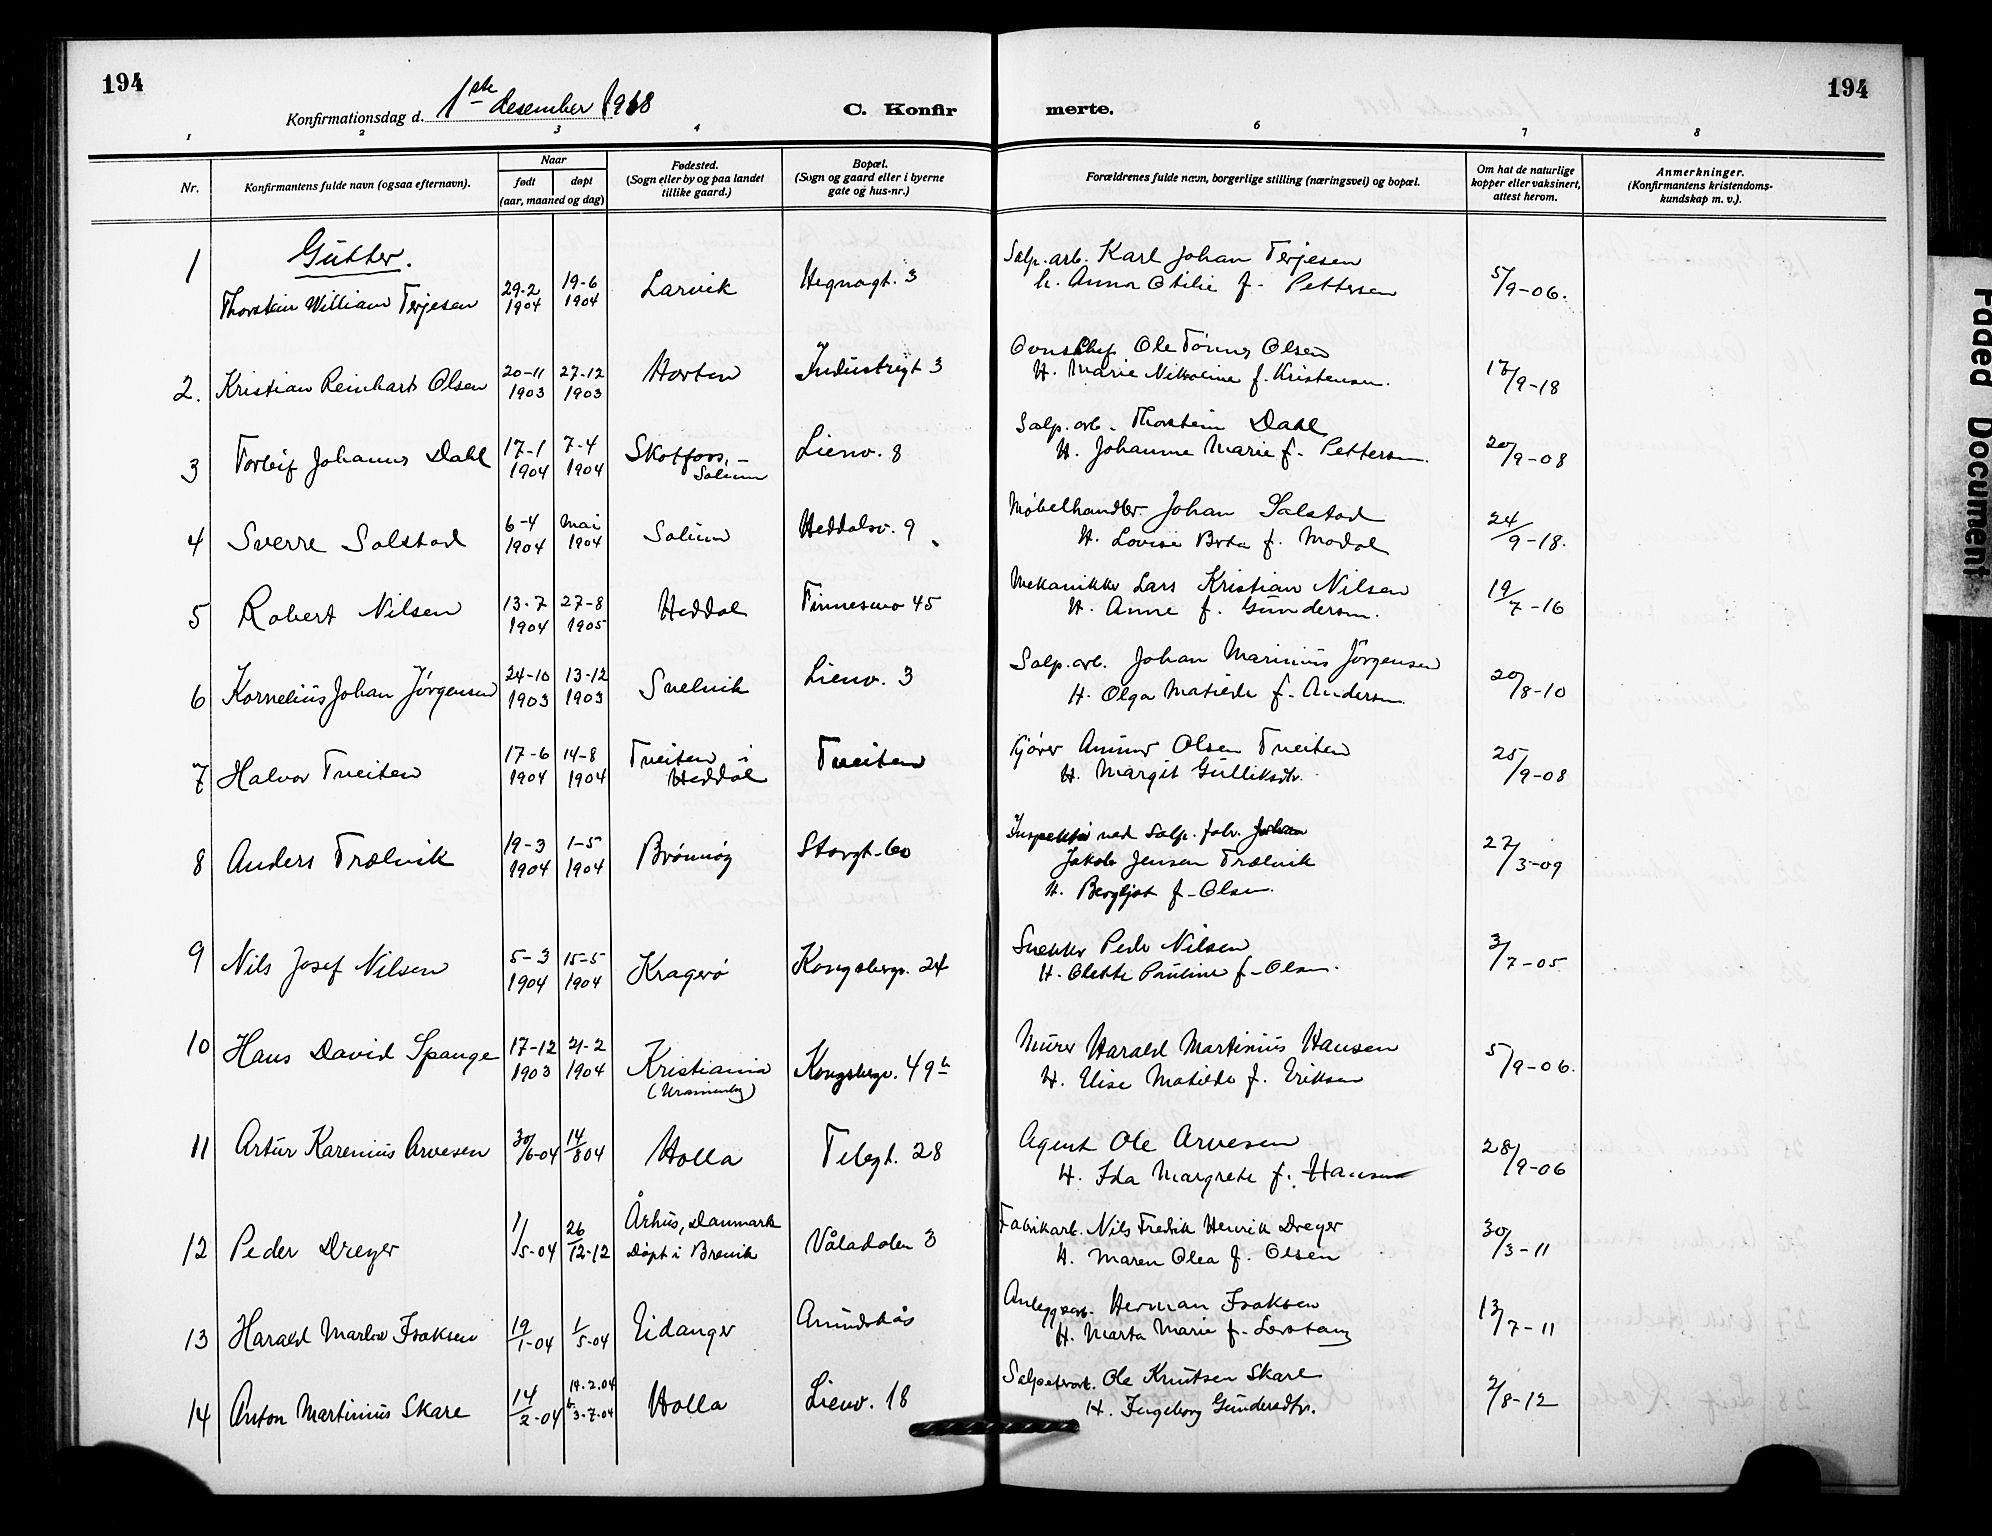 194
Konfirmationsdag d. 1ste desember 1918
C. Konfir
merte.
194
1 2 3 4 6 7 8
Nr.
Konfirmantens fulde navn (ogsaa efternavn).
Naar
født døpt
(aar, maaned og dag)
Fødested.
(Sogn eller by og paa landet
tillike gaard.)
Bopæl.
(Sogn og gaard eller i byerne
gate og hus-nr.)
Forældrenes fulde navn, borgerlige stilling (næringsvei) og bopæl.
Om hat de naturlige
kopper eller vaksinert,
attest herom.
Anmerkninger.
(Konfirmantens kristendoms-
kundskap m. v.).
Gutter.
1 Thorstein William Terjesen 29-2 1904 19-6 1904 Larvik 3
Salp. arb. Karl Johan Terjesen
h. Anna Otilie f. Pettersen
5/9-06.
2. Kristian Reinhart Olsen 20-11 1903 27-12 1903 Horten Industrigt 3
Ole Tønnes Olsen
H. Marie Nikoline f. Kristensen.
17/9-18
3 Torleif Johannes Dahl 17-1 1904 7-4 1904 Skotfoss, - Solum Lienv. 8
Salp. arb. Thorstein Dahl
H. Johanne Marie f. Pettersen.
20/9-08
4 Sverre Solstad 6-4 1904 mai 1904 Solum Heddalsv. 9
Møbelhandler Johan Salstad
H. Lovise Berta f. Modal
24/9-18.
5 Robert Nilsen 13-7 1904 27-8 1905 Heddal Tinnesmo 45
Mekanikker Lars Kristian Nilsen
H. Anne f. Gundersen.
19/7-16
6 Kornelius Johan Jørgensen 24-10 1903 13-12 1903 Svelvik Lienv. 3
Salp. arb. Johan Marinius Jørgensen
H. Olga Matilde f. Andersen.
20/8-10
7 Halvor Tveiten 17-6 1904 14-8 1904 Tveiten i Heddal Tveiten
Kjører Anund Olsen Tveiten
H. Margit Gulliksdtr.
25/9-08
8 Anders Trælvik 19-3 1904 1-5 1904 Brønnøy Storgt. 60
Inspektør ved Salp. fabr. Johan
Jakob Jensen Trælvik
H. Bergljot f. Olsen.
27/3-09
9 Nils Josef Nilsen 5-3 1904 15-5 1904 Kragerø Kongsbergv. 24
Snekker Peder Nilsen
H. Olette Pauline f. Olsen.
3/7-05
10 Hans David Spange 17-12 1903 21-2 1904 Kristiania (Uranienborg) Kongsbergv. 49b
Murer Harald Martinius Hansen
H. Elise Matilde f. Eriksen
5/9-06.
11 Artur Karenius Arvesen 30/6-04 14/8 04 Holla Telegt. 28
Agent Ole Arvesen
H. Ida Margrete f. Hansen
28/9-06
12 Peder Dreyer 1/5-04 26/12-12 Århus, Danmark Døpt i Brevik Våladalen 3
Fabrikarb. Nils Fredik Henrik Dreyer
H. Maren Olea f. Olsen
30/3-11
13 Harald Marlov Isaksen 19/1-04 1/5-04 Eidanger Amundsås
Anleggsarb. Herman Isaksen
H. Marta Marie f. Lerstang
13/7-11
14 Anton Martinius Skare 14/2-04 14.2.04 3-7-04 Holla Lienv. 18
Salpeterarb. Ole Knutsen Skare
H. Ingeborg Gundersdtr.
2/8-12
Faded Document